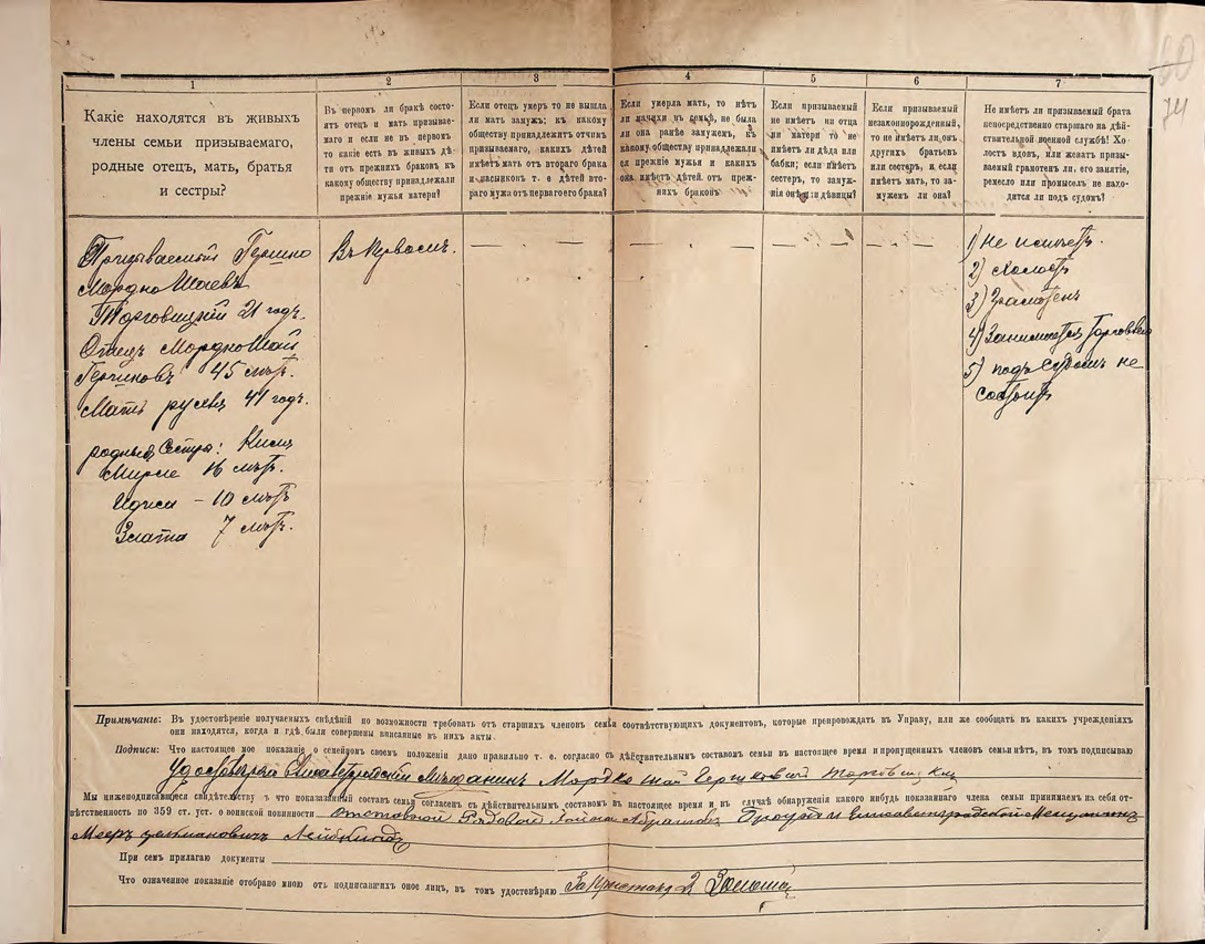 60
74
1
2
3
4
5
6
7
Какіе находятся въ живыхъ
члены семьи призываемаго,
родные отецъ, мать, братья
и сестры?
Въ первомъ ли бракѣ состо-
ятъ отецъ и мать призывае-
маго и если не въ первомъ
то какіе есть въ живыхъ дѣ-
ти отъ прежнихъ браковъ къ
какому обществу принадлежали
прежніе мужья матери?
Если отецъ умеръ то не вышла
ли мать замужъ; къ какому
обществу принадлежитъ отчимъ
призываемаго, какихъ дѣтей
имѣетъ мать отъ втораго брака
и пасынковъ т. е дѣтей вто-
раго мужа отъ перваго его брака?
Если умерла мать, то нѣтъ
ли мачихи въ семьѣ, не была
ли она ранѣе замужемъ, къ
какому обществу принадлежали
ея прежніе мужья и какихъ
она имѣетъ дѣтей отъ преж-
нихъ браковъ
Если призываемый
не имѣетъ ни отца
ни матери то не
имѣетъ ли дѣда или
бабки; если имѣетъ
сестеръ, то замуж-
нія онѣ или дѣвицы?
Если призываемый
незаконнорожденный,
то не имѣетъ ли онъ
другихъ братьевъ
или сестеръ, и если
имѣетъ мать, то за-
мужемъ ли она?
Не имѣетъ ли призываемый брата
непосредственно старшаго на дѣй-
ствительной военной службѣ! Хо-
лостъ вдовъ, или женатъ призы-
ваемый грамотенъ ли, его занятіе,
ремесло или промыселъ не нахо-
дится ли подъ судомъ?
Призываемый Гершко
Мордко Шаевъ
Торговицкій 21 годъ.
Отецъ Мордко Шай
Гершковъ 45 лѣтъ.
Мать рухля 41 годъ.
родныя Сестры:
Мирле 16 лѣтъ.
Идиса – 10 лѣтъ
Злата 7 лѣтъ.
Въ первомъ.
1) Не имѣетъ.
2) холостъ
3) Грамотенъ
4) Занимается торговлею
5) подъ судомъ не
состоитъ
Примѣчаніе: Въ удостовѣреніе получаемыхъ свѣдѣній по возможности требовать отъ старшихъ членовъ семьи соотвѣтствующихъ документовъ, которые препровождать въ Управу, или же сообщать въ какихъ учрежденіяхъ
они находятся, когда и гдѣ были совершены вписанные въ нихъ акты.
Подписи: Что настоящее мое показаніе о семейномъ своемъ положеніи дано правильно т. е. согласно съ дѣйствительнымъ составомъ семьи въ настоящее время и пропущенныхъ членовъ семьи нѣтъ, въ томъ подписываю
Удостовѣряю Елисаветградскій Мѣщанинъ Мордко Шай Гершковъ Торговицкій
Мы нижеподписавшіеся свидѣтельству ъ что показанный составъ семьи согласенъ съ дѣйствительнымъ составомъ въ настоящее время и въ случаѣ обнаруженія какого нибудь показаннаго члена семьи принимаемъ на себя от-
вѣтственность по 359 ст. уст. о воинской повинности отставной Рядовой Абрамовъ Елисаветградской Мещанинъ
Мееръ Лейбкиндъ
При семъ прилагаю документы
Что означенное показаніе отобрано мною отъ подписавшихъ оное лицъ, въ томъ удостовѣряю За Пристава 2